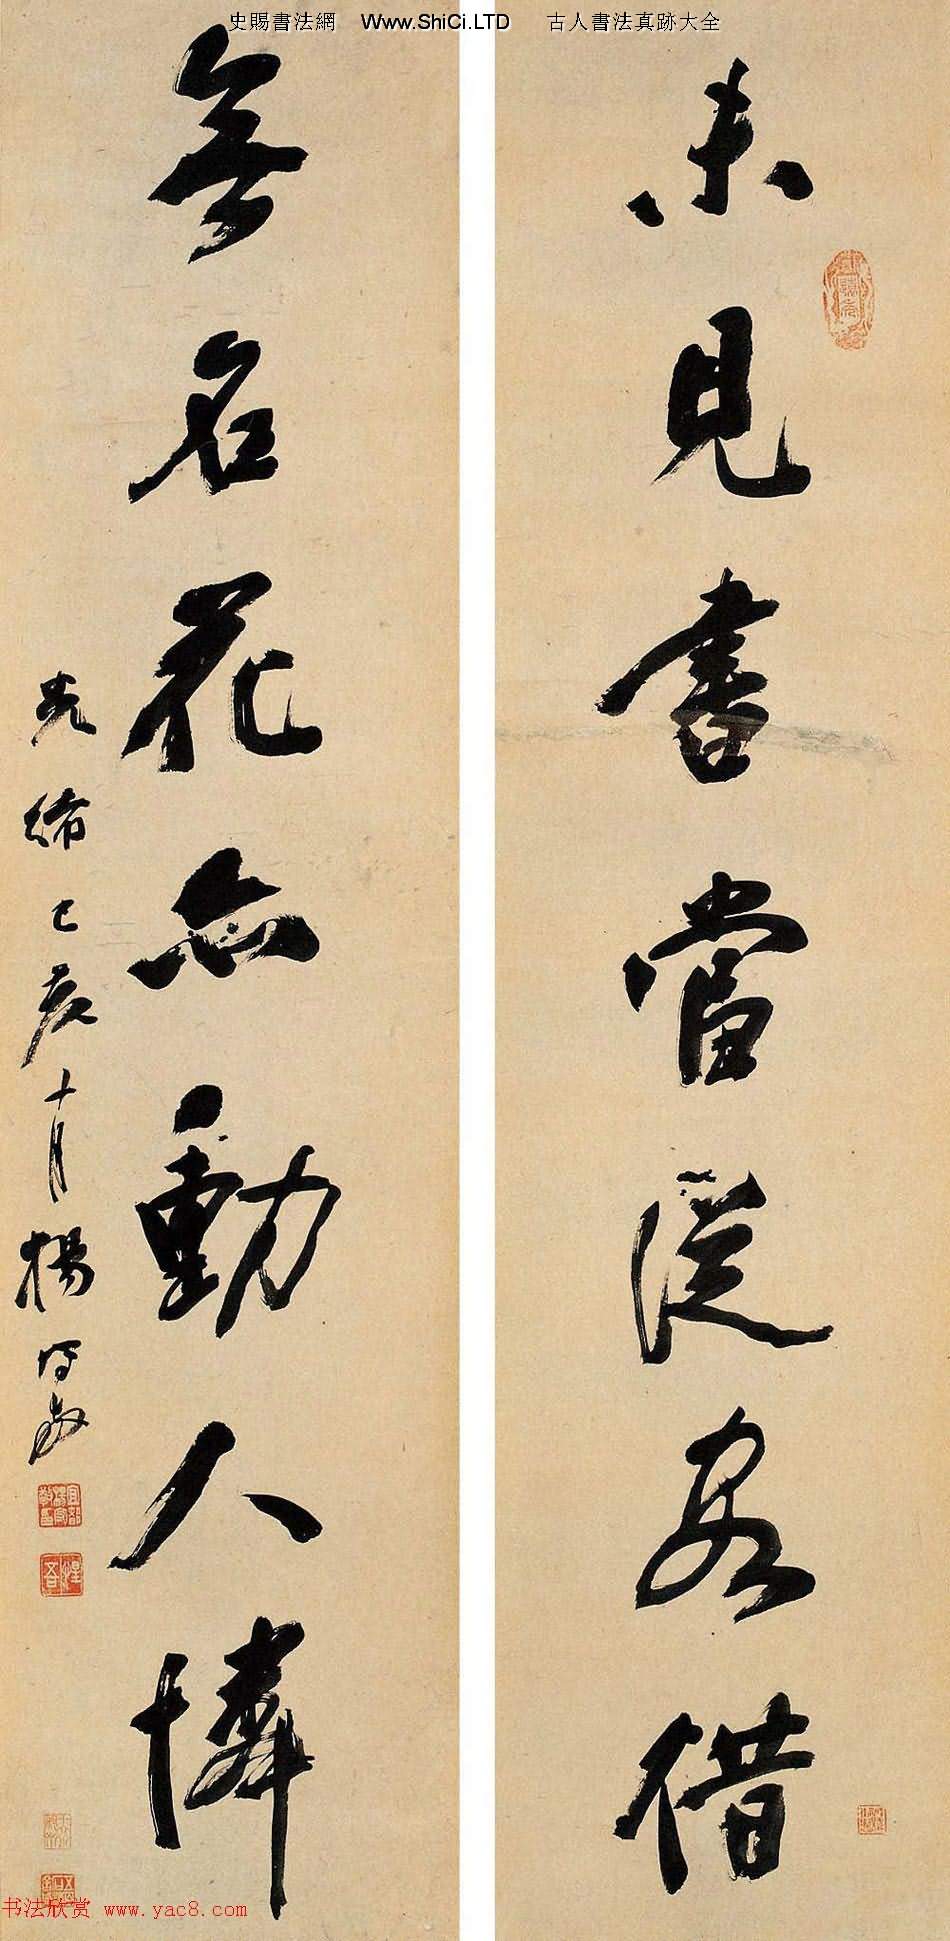 史賜書法網 WWW.ShiCi.LTD 古人書法真跡大全
未見書當從客借
無名花亦動人憐
光緒己亥十月楊守敬
宜都楊守敬印
惺吾
书法欣赏 www.yac8.com